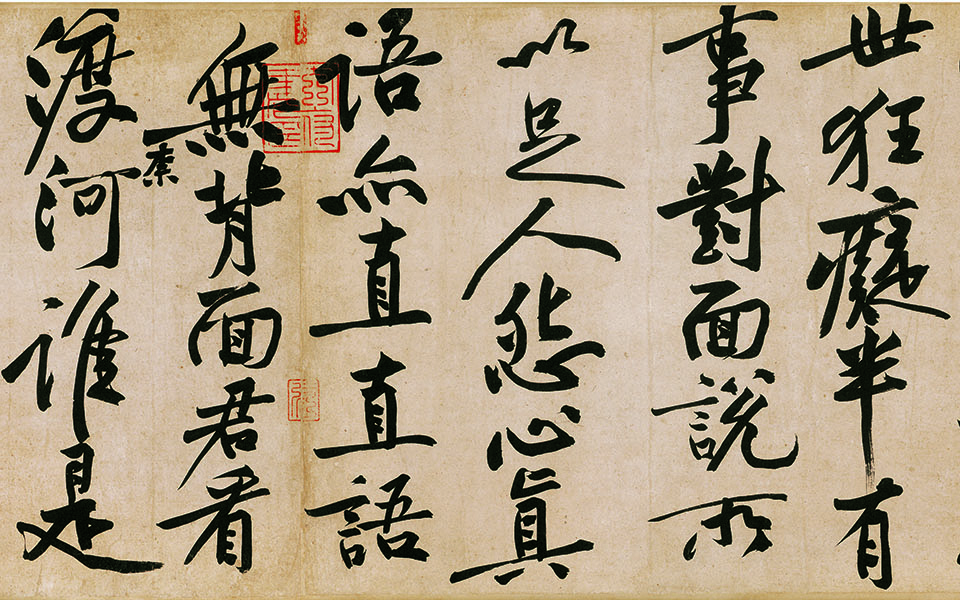 世狂癡半有
事對面說所
以足人怨心真
語亦直直語
無背面君看
渡柰河誰是